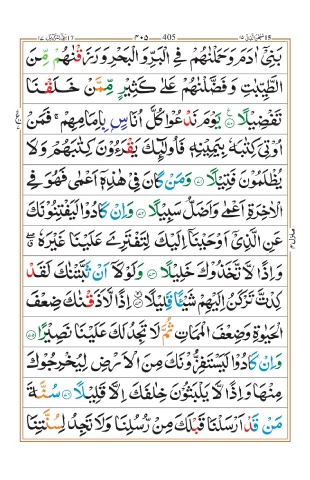 405 ٤٠٥
بَنِیْۤ اٰدَمَ وَحَمَلْنٰهُمْ فِی الْبَرِّ وَالْبَحْرِ وَرَزَقْنٰهُمْ مِّنَ
الطَّیِّبٰتِ وَفَضَّلْنٰهُمْ عَلٰی كَثِیْرٍ مِّمَّنْ خَلَقْنَا
تَفْضِیْلًا ۟ یَوْمَ نَدْعُوْا كُلَّ اُنَاسٍ بِاِمَامِهِمْ ۚ فَمَنْ
اُوْتِیَ كِتٰبَهٗ بِیَمِیْنِهٖ فَاُولٰٓىِٕكَ یَقْرَءُوْنَ كِتٰبَهُمْ وَلَا
یُظْلَمُوْنَ فَتِیْلًا ۟ وَمَنْ كَانَ فِیْ هٰذِهٖۤ اَعْمٰی فَهُوَ فِی
الْاٰخِرَةِ اَعْمٰی وَاَضَلُّ سَبِیْلًا ۟ وَاِنْ كَادُوْا لَیَفْتِنُوْنَكَ
عَنِ الَّذِیْۤ اَوْحَیْنَاۤ اِلَیْكَ لِتَفْتَرِیَ عَلَیْنَا غَیْرَهٗ ۖۗ
وَاِذًا لَّاتَّخَذُوْكَ خَلِیْلًا ۟ وَلَوْلَاۤ اَنْ ثَبَّتْنٰكَ لَقَدْ
كِدْتَّ تَرْكَنُ اِلَیْهِمْ شَیْـًٔا قَلِیْلًا ۟ اِذًا لَّاَذَقْنٰكَ ضِعْفَ
الْحَیٰوةِ وَضِعْفَ الْمَمَاتِ ثُمَّ لَا تَجِدُ لَكَ عَلَیْنَا نَصِیْرًا ۟
وَاِنْ كَادُوْا لَیَسْتَفِزُّوْنَكَ مِنَ الْاَرْضِ لِیُخْرِجُوْكَ
مِنْهَا وَاِذًا لَّا یَلْبَثُوْنَ خِلٰفَكَ اِلَّا قَلِیْلًا ۟ سُنَّةَ
مَنْ قَدْ اَرْسَلْنَا قَبْلَكَ مِنْ رُّسُلِنَا وَلَا تَجِدُ لِسُنَّتِنَا